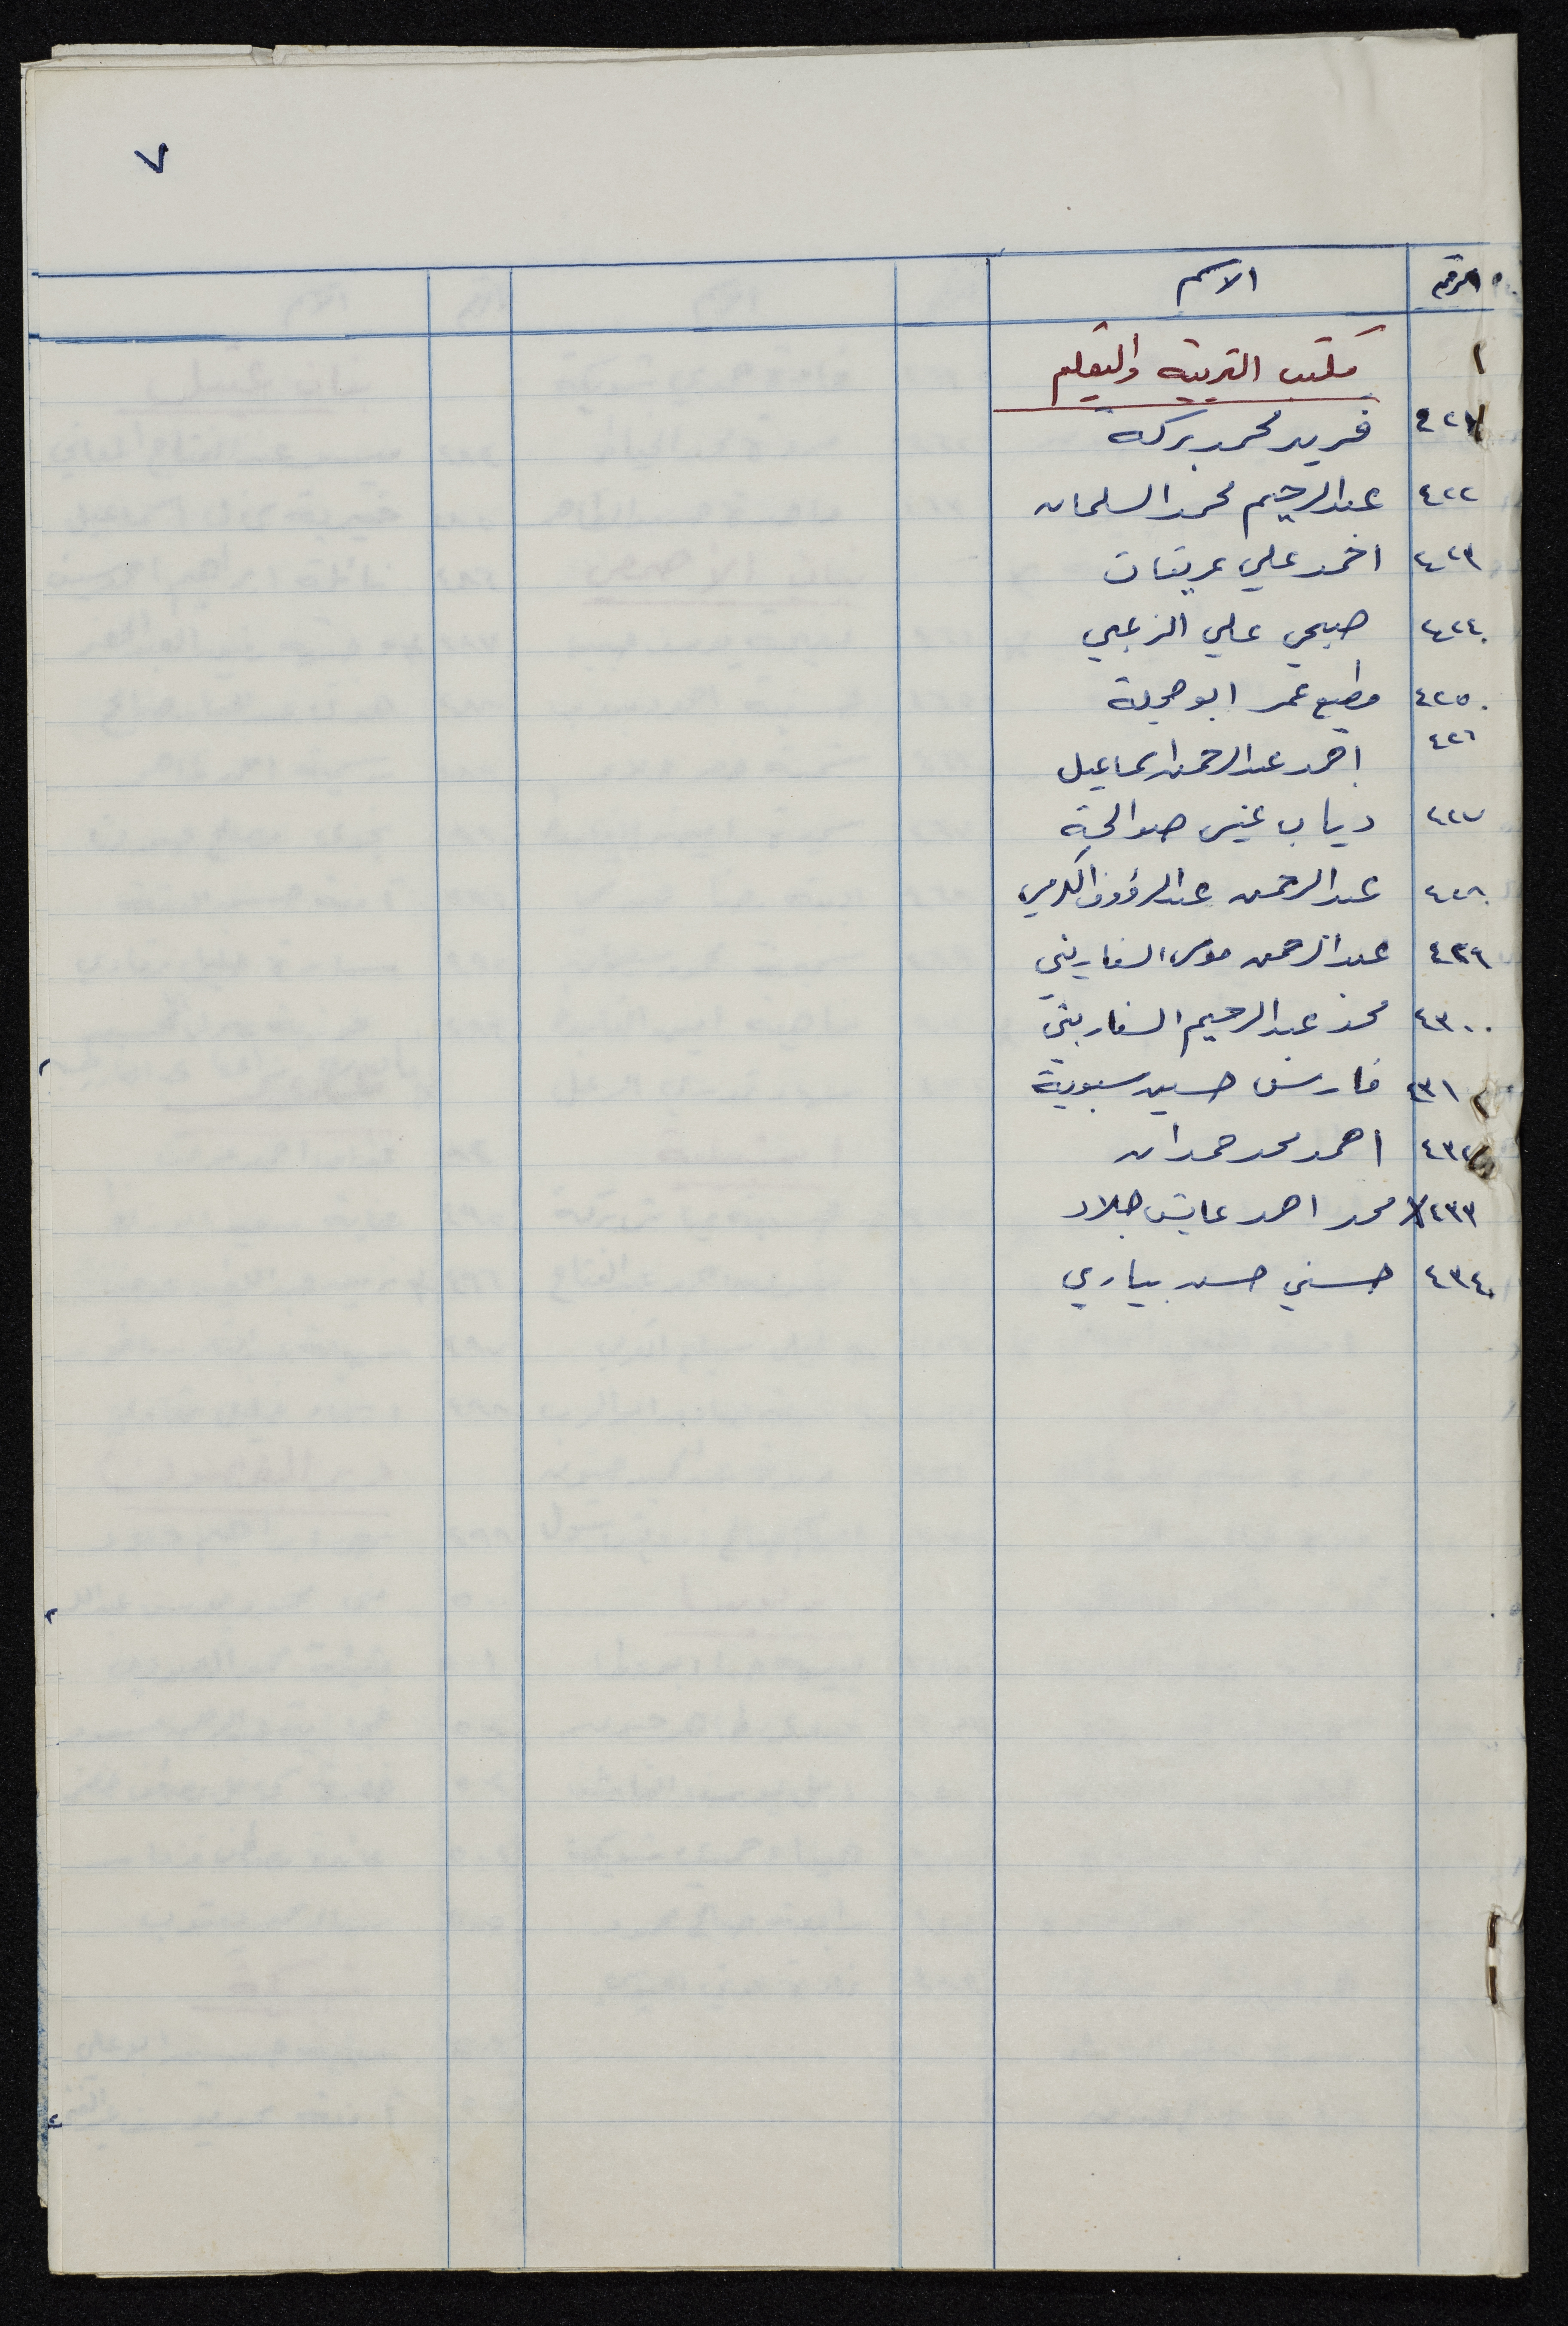 ٧
الرقم الاسم
مكتب التربية والتعليم
٤٢١ فريد محمد بركة
٤٢٢ عبد الرحيم محمد السلمان
٤٢٣ احمد علي عرينات
٤٢٤ صبحي علي الزعبي
٤٢٥ مطيع عمر ابو حجلة
٤٢٦ احمد عبد الرحمن اسماعيل
٤٢٧ دياب صوالحة
٤٢٨ عبد الرحمن عبد الرؤوف الكرمي
٤٢٩ عبد الرحمن موسى السفاريني
٤٣٠ محمد عبد الرحيم السفاريني
٤٣١ فارس حسين سبوبة
٤٣٢ احمد محمد حمدان
٤٣٣ محمد احمد عايش جلاد
٤٣٤ حسني حسن بياري